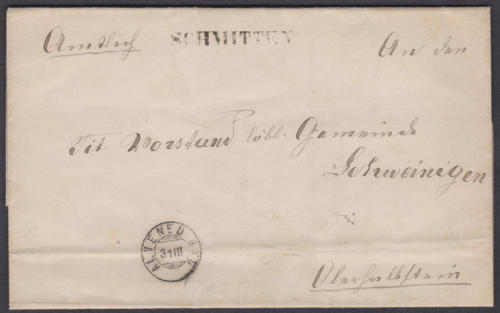 Amtlich SCHMITTEN An den
Tit. Vorstand löbl. Gemeinde
Schweinigen
in
Oberhalbstein
ALVENEU BAD
31 III